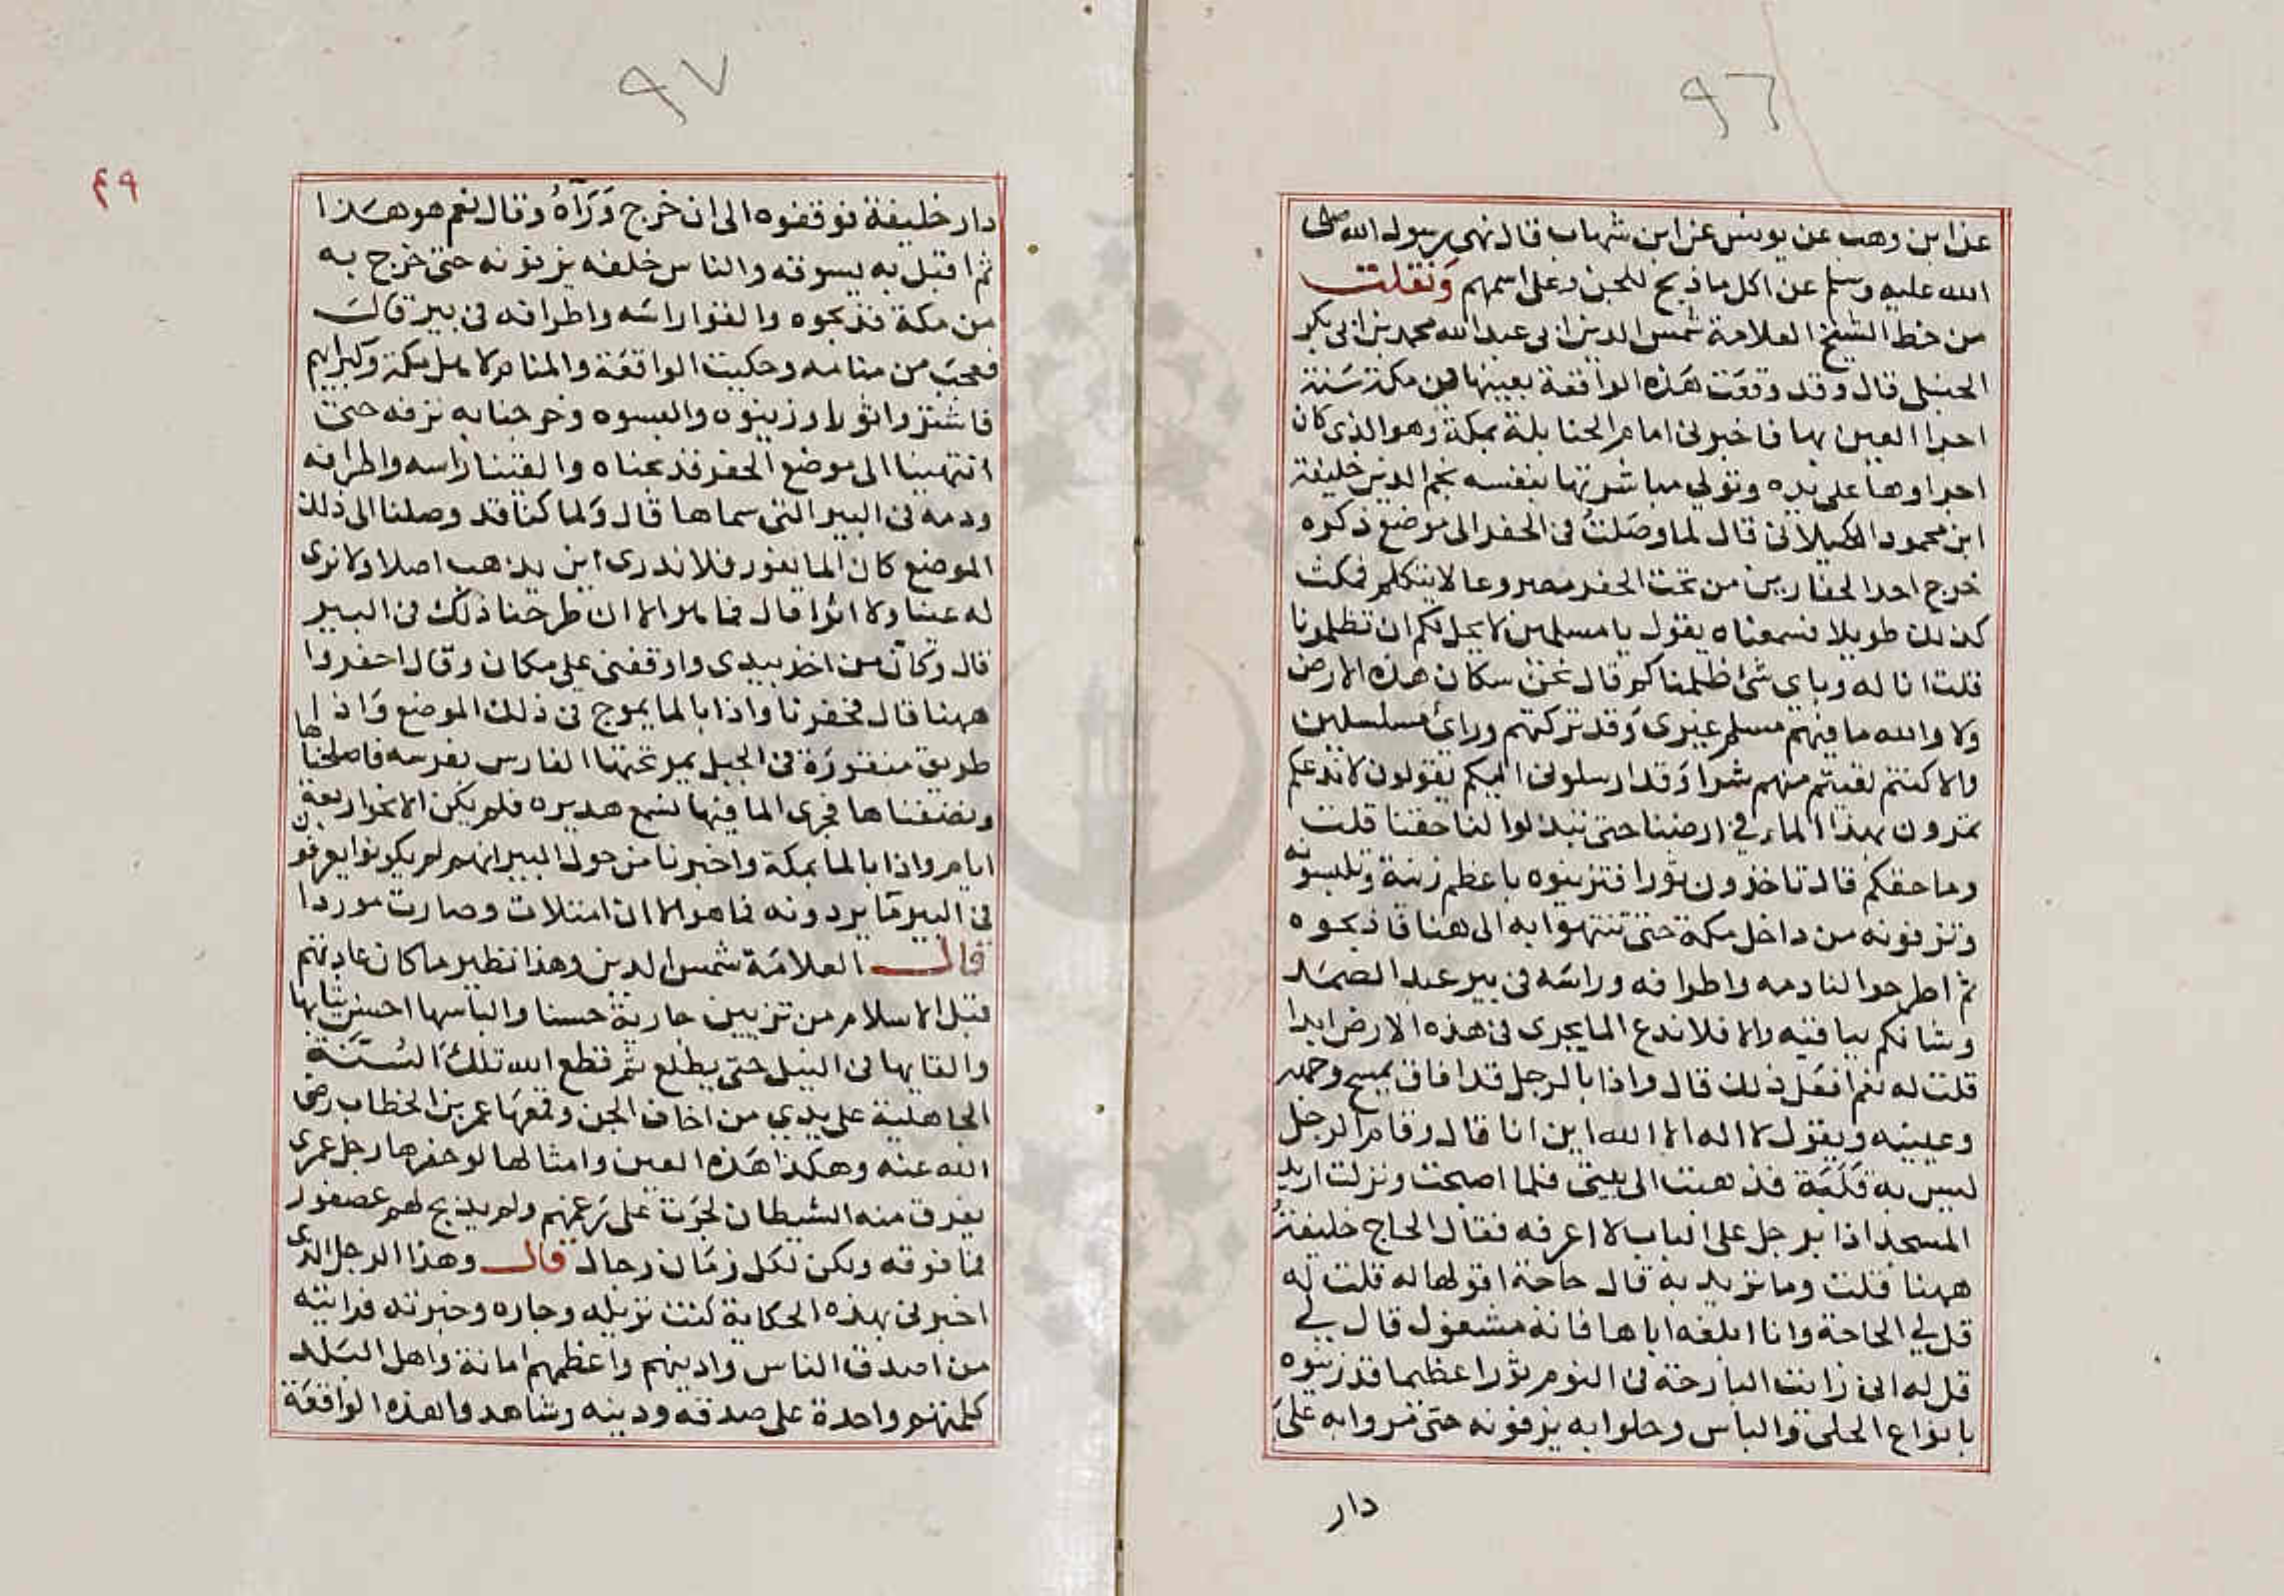 ٩٦
عن ابن وهب عن يونس عن ابن شهاب قال نهى رسول الله صلى
الله عليه وسلم عن اكل ما ذبح للجن وعلى اسمهم ونقلت
من خط الشيخ العلامة شمس الدين ابى عبد الله محمد بن ابى بكر
الحنبلى قال وقد وقعت هذه الواقعة بعينها فى مكة سنة
اجرا العين بها فاخبرنى امام الحنابلة بمكة وهو الذى كان
اجراوها على يده وتولى مباشرتها بنفسه نجم الدين خليفة
ابن محمود الكيلانى قال لما وصلت فى الحفر الى موضع ذكره
خرج احد الحفارين من تحت الحفر مصروعا لا يتكلم فمكث
كذلك طويلا فسمعناه يقول يا مسلمين لا يحل لكم ان تظلمونا
قلت انا له وباى شئ ظلمناكم قال نحن سكان هذه الارض
ولا والله ما فيهم مسلم غيرى وقد تركتهم وراى مسلسلين
والا كنتم لقيتم منهم شرا وقد ارسلونى اليكم يقولون لا ندعكم
تمرون بهذا الماء في ارضنا حتى تبذلوا لنا حقنا قلت
وما حقكم قال تاخذون ثورا فتزينوه باعظم زينة وتلبسونه
وتزفونه من داخل مكة حتى تنتهوا به الى هنا فاذبحوه
ثم اطرحوا لنا دمه واطرافه وراسه فى بير عبد الصمد
وشانكم بباقيه والا فلا ندع الما يجرى فى هذه الارض ابدا
قلت له نعم افعل ذلك قال واذا بالرجل قد افاق يمسح وجهه
وعينيه ويقول لا اله الا الله اين انا قال وقام الرجل
ليس به قلبة فذهبت الى بيتى فلما اصبحت ونزلت اريد
المسجد اذا برجل على الباب لا اعرفه فقال الحاج خليفة
ههنا قلت وما تريد به قال حاجة اقولها له قلت له
قل لي الحاجة وانا ابلغه اياها فانه مشغول قال لي
قل له انى رايت البارحة فى النوم ثورا عظيما قد زينوه
بانواع الحلى والباس وجاوا به يزفونه حتى مروا به على
دار
٩٧
٤٩
دار خليفة فوقفوه الى ان خرج ورآه وقال نعم هو هذا
ثم اقبل به يسوقه والناس خلفه يزفونه حتى خرج به
من مكة فذبحوه والقوا راسه واطرافه فى بير قال
فعجبت من منامه وحكيت الواقعة والمنام لاهل مكة وكبرايهم
فاشتروا ثورا وزينوه والبسوه وخرجنا به نزفه حتى
انتهينا الى موضع الحفر فذبحناه والقينا راسه واطرافه
ودمه فى البير التى سماها قال ولما كنا قد وصلنا الى ذلك
الموضع كان الما يغور فلا ندرى اين يذهب اصلا ولا نرى
له عينا ولا اثرا قال فما هو الا ان طرحنا ذلك فى البير
قال وكان من اخذ بيدى واوقفنى على مكان وقال احفروا
ههنا قال فحفرنا واذا بالما يموج فى ذلك الموضع واذا
طريق منقورة فى الجبل يمر تحتها الفارس بفرسه فاصلحناها
ونضفناها فجرى الما فيها نسمع هديره فلم يكن الا نحو اربعة
ايام واذا بالما بمكة واخبرنا من حول البير انهم لم يكونوا يعرفون
فى البير ما يردونه فما هو الا ان امتلات وصارت موردا
قال العلامة شمس الدين وهذا نظير ما كان عادتهم
قبل الاسلام من تزيين جارية حسنا والباسها احسن ثيابها
والقايها فى النيل حتى يطلع ثم قطع الله تلك السنة
الجاهلية على يدي من اخاف الجن وقمعها عمر بن الخطاب رضى
الله عنه وهكذا هذه العين وامثالها لو حفرها رجل عمرى
يفرق منه الشيطان لجرت على رغمهم ولم يذبح لهم عصفور
فما فوقه ولكن لكل زمان رجال قال وهذا الرجل الذى
اخبرنى بهذه الحكاية كنت نزيله وجاره وخبرته فرايته
من اصدق الناس وادينهم واعظمهم امانة واهل البلد
كلمتهم واحدة على صدقه ودينه وشاهدوا هذه الواقعة